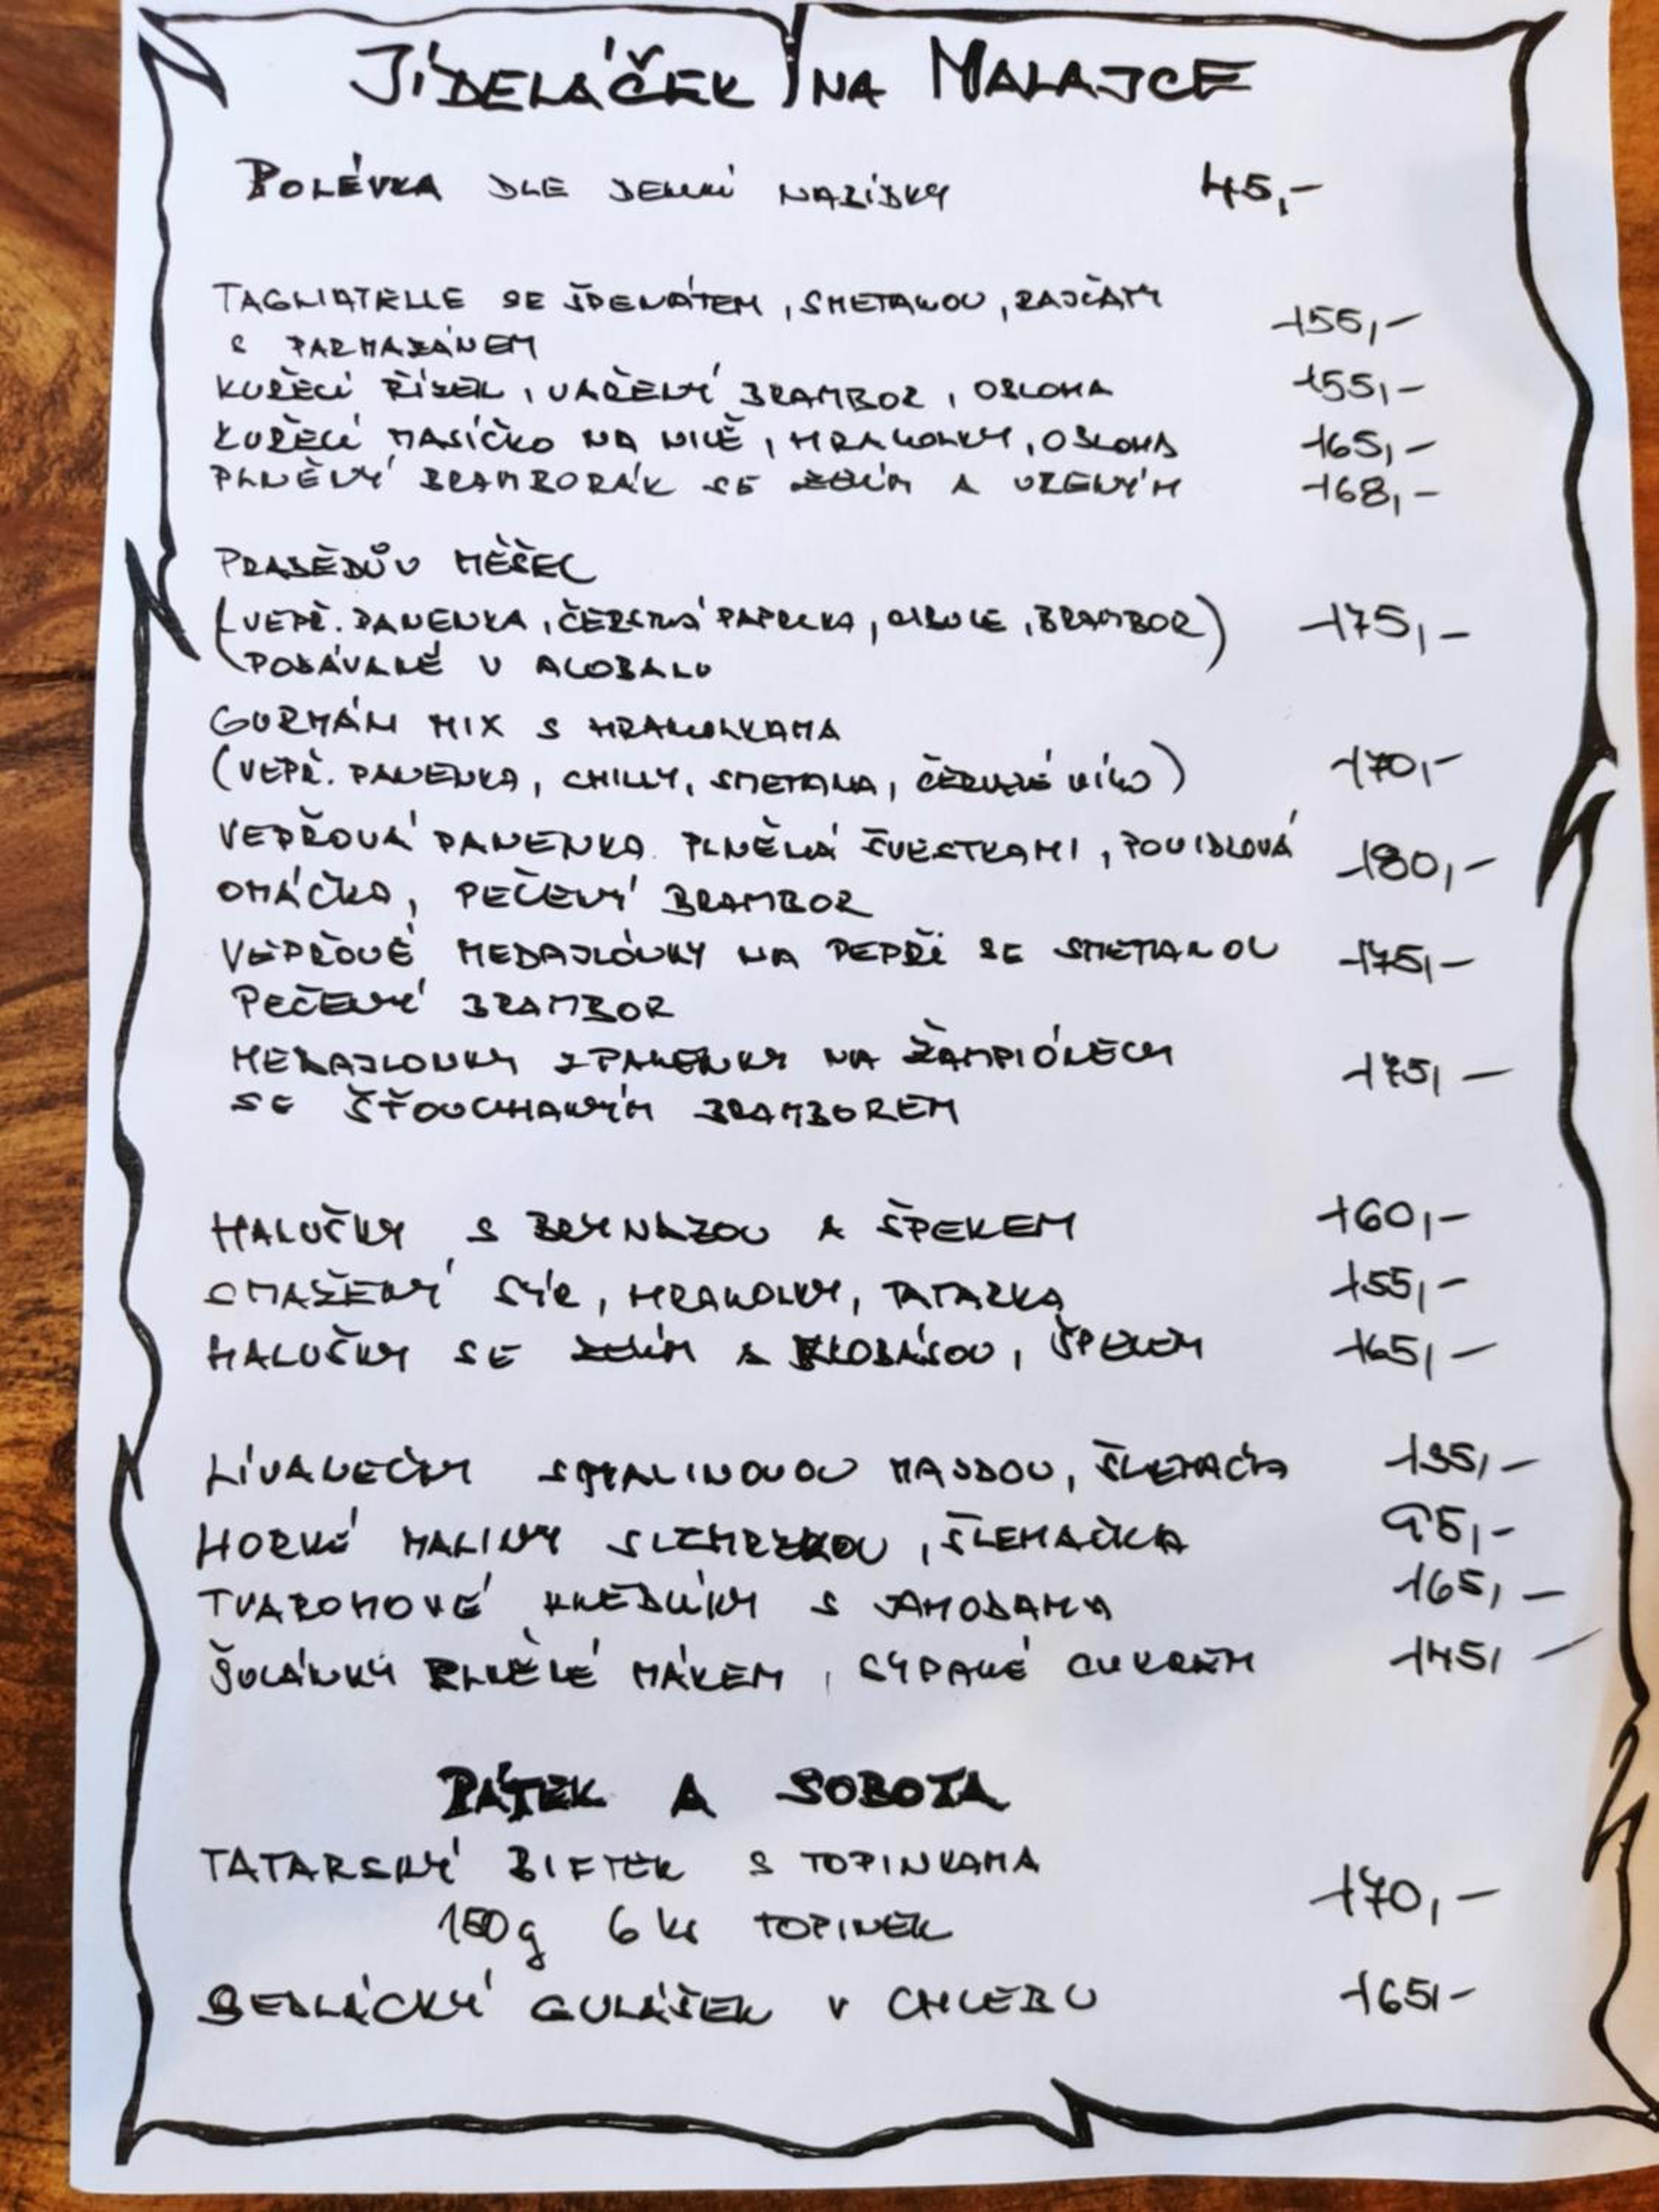 JÍDELÁČEK NA MALAJCE
POLÉVKA DLE DENNÍ NABÍDKY 45,-
TAGLIATELLE SE ŠPENÁTEM, SMETANOU, RAJČATY
S PARMAZÁNEM 155,-
KUŘECÍ ŘÍZEK, VAŘENÝ BRAMBOR, OBLOHA 155,-
KUŘECÍ MASÍČKO NA NIVĚ, HRANOLKY, OBLOHA 165,-
PLNĚNÝ BRAMBORÁK SE ZELÍM A UZENÝM 168,-
PRASĚDŮV MĚŠEC
(VEPŘ. PANENKA, ČERSTVÁ PAPRIKA, CIBULE, BRAMBOR) 175,-
PODÁVANÉ V ALOBALU
GURMÁN MIX S HRANOLKAMA
(VEPŘ. PANENKA, CHILLY, SMETANA, ČERVENÉ VÍNO) 170,-
VEPŘOVÁ PANENKA PLNĚNÁ ŠVESTKAMI, POVIDLOVÁ
OMÁČKA, PEČENÝ BRAMBOR 180,-
VEPŘOVÉ MEDAJLÓNKY NA PEPŘI SE SMETANOU 175,-
PEČENÝ BRAMBOR
MEDAJLONKY Z PANENKY NA ŽAMPIÓNECH 175,-
SE ŠŤOUCHANÝM BRAMBOREM
HALUŠKY S BRYNDZOU A ŠPEKEM 160,-
SMAŽENÝ SÝR, HRANOLKY, TATARKA 155,-
HALUŠKY SE ZELÍM A KLOBÁSOU, ŠPEKEM 165,-
LÍVANEČKY S MALINOVOU MASDOU, ŠLEHAČKA 135,-
HORKÉ MALINY S ZMRZKOU, ŠLEHAČKA 95,-
TVAROHOVÉ KNEDLÍKY S JAHODAMA 165,-
ŠULÁNKY PLNĚNÉ MÁKEM, SYPANÉ CUKREM 145,-
PÁTEK A SOBOTA
TATARSKÝ BIFTEK S TOPINKAMA
150g 6 ks TOPINEK 170,-
SEDLÁCKÝ GULÁŠEK V CHLEBU 165,-